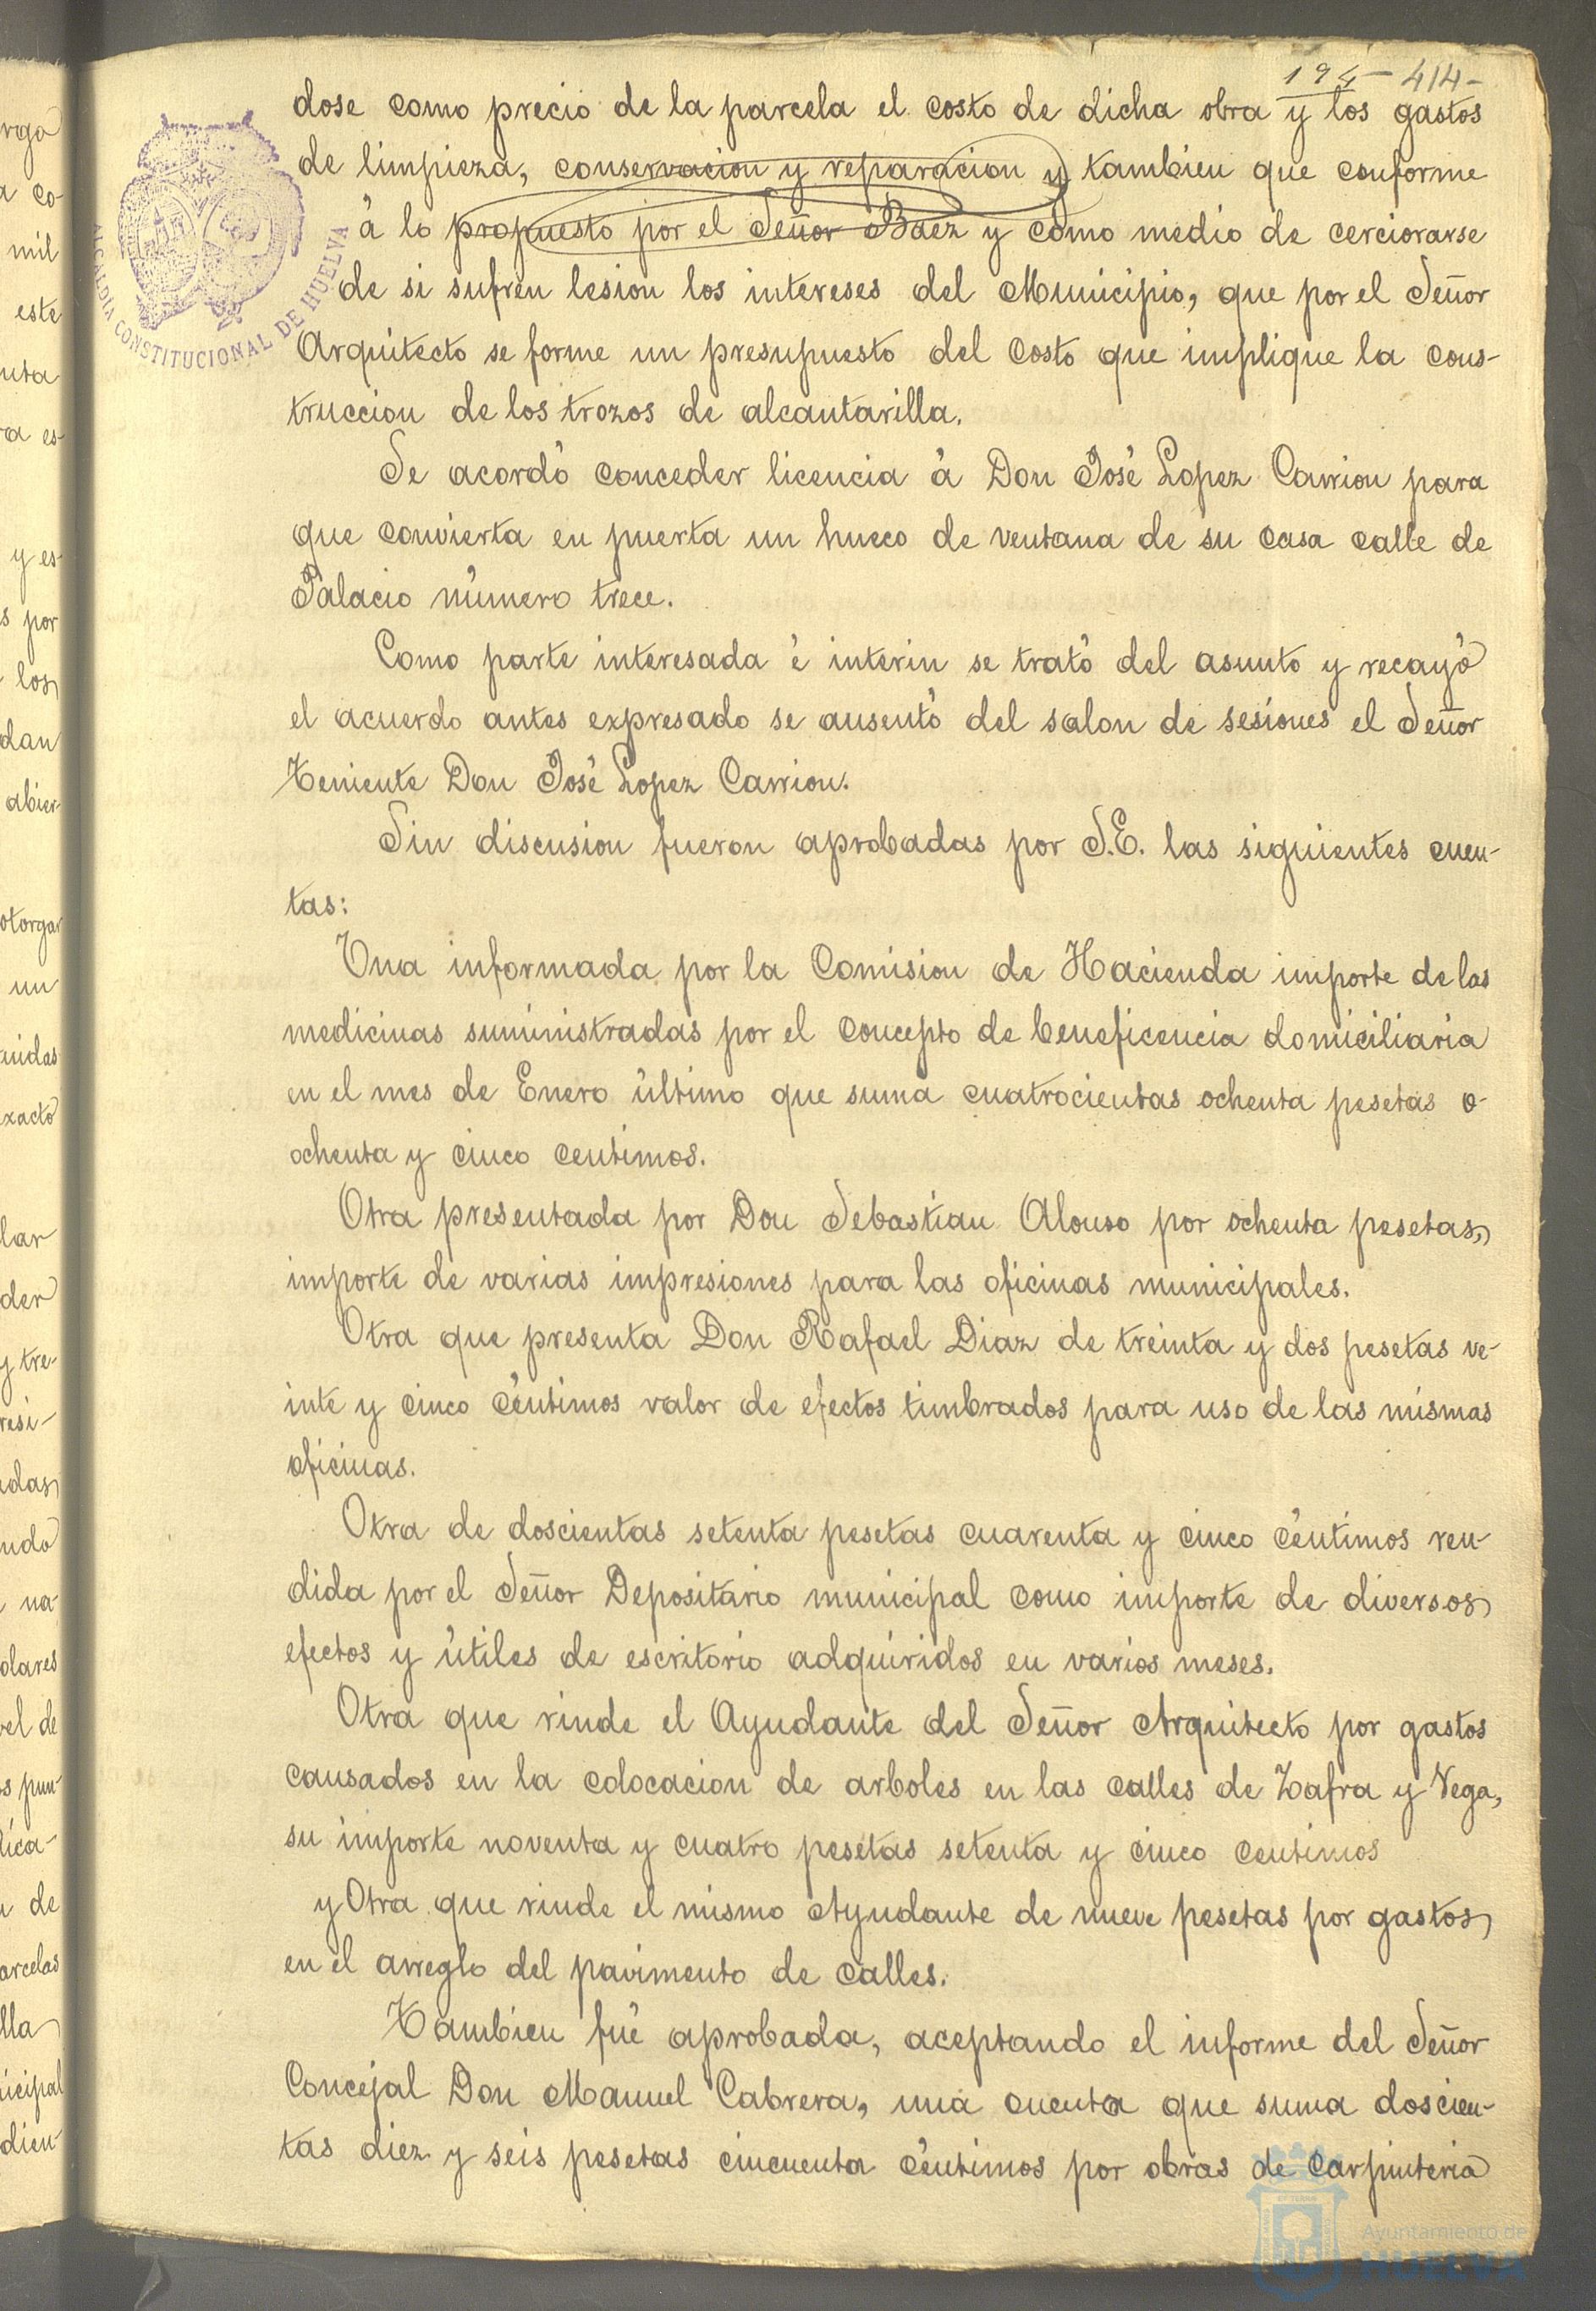 194 - 414 -
dose como precio de la parcela el costo de dicha obra y los gastos
de limpieza, conservacion y reparacion y tambien que conforme
á lo propuesto por el Señor Baez y como medio de cerciorarse
de si sufren lesion los intereses del Municipio, que por el Señor
Arquitecto se forme un presupuesto del costo que implique la cons-
truccion de los trozos de alcantarilla.
Se acordó conceder licencia á Don José Lopez Carrion para
que convierta en puerta un hueco de ventana de su casa calle de
Palacio número trece.
Como parte interesada é interin se trató del asunto y recayó
el acuerdo antes expresado se ausentó del salon de sesiones el Señor
Teniente Don José Lopez Carrion.
Sin discusion fueron aprobadas por S.E. las siguientes cuen-
tas:
Una informada por la Comision de Hacienda importe de las
medicinas suministradas por el concepto de beneficencia domiciliaria
en el mes de Enero último que suma cuatrocientas ochenta pesetas o-
ochenta y cinco centimos.
Otra presentada por Don Sebastian Alonso por ochenta pesetas,
importe de varias impresiones para las oficinas municipales.
Otra que presenta Don Rafael Diaz de treinta y dos pesetas ve-
inte y cinco céntimos valor de efectos timbrados para uso de las mismas
oficinas.
Otra de doscientas setenta pesetas cuarenta y cinco céntimos ren-
dida por el Señor Depositario municipal como importe de diversos
efectos y útiles de escritorio adquiridos en varios meses.
Otra que rinde el Ayudante del Señor Arquitecto por gastos
causados en la colocacion de arboles en las calles de Zafra y Vega,
su importe noventa y cuatro pesetas setenta y cinco centimos
y Otra que rinde el mismo Ayudante de nueve pesetas por gastos
en el arreglo del pavimento de calles.
Tambien fué aprobada, aceptando el informe del Señor
Concejal Don Manuel Cabrera, una cuenta que suma doscien-
tas diez y seis pesetas cincuenta céntimos por obras de carpinteria
ALCALDÍA CONSTITUCIONAL DE HUELVA
Ayuntamiento de
HUELVA